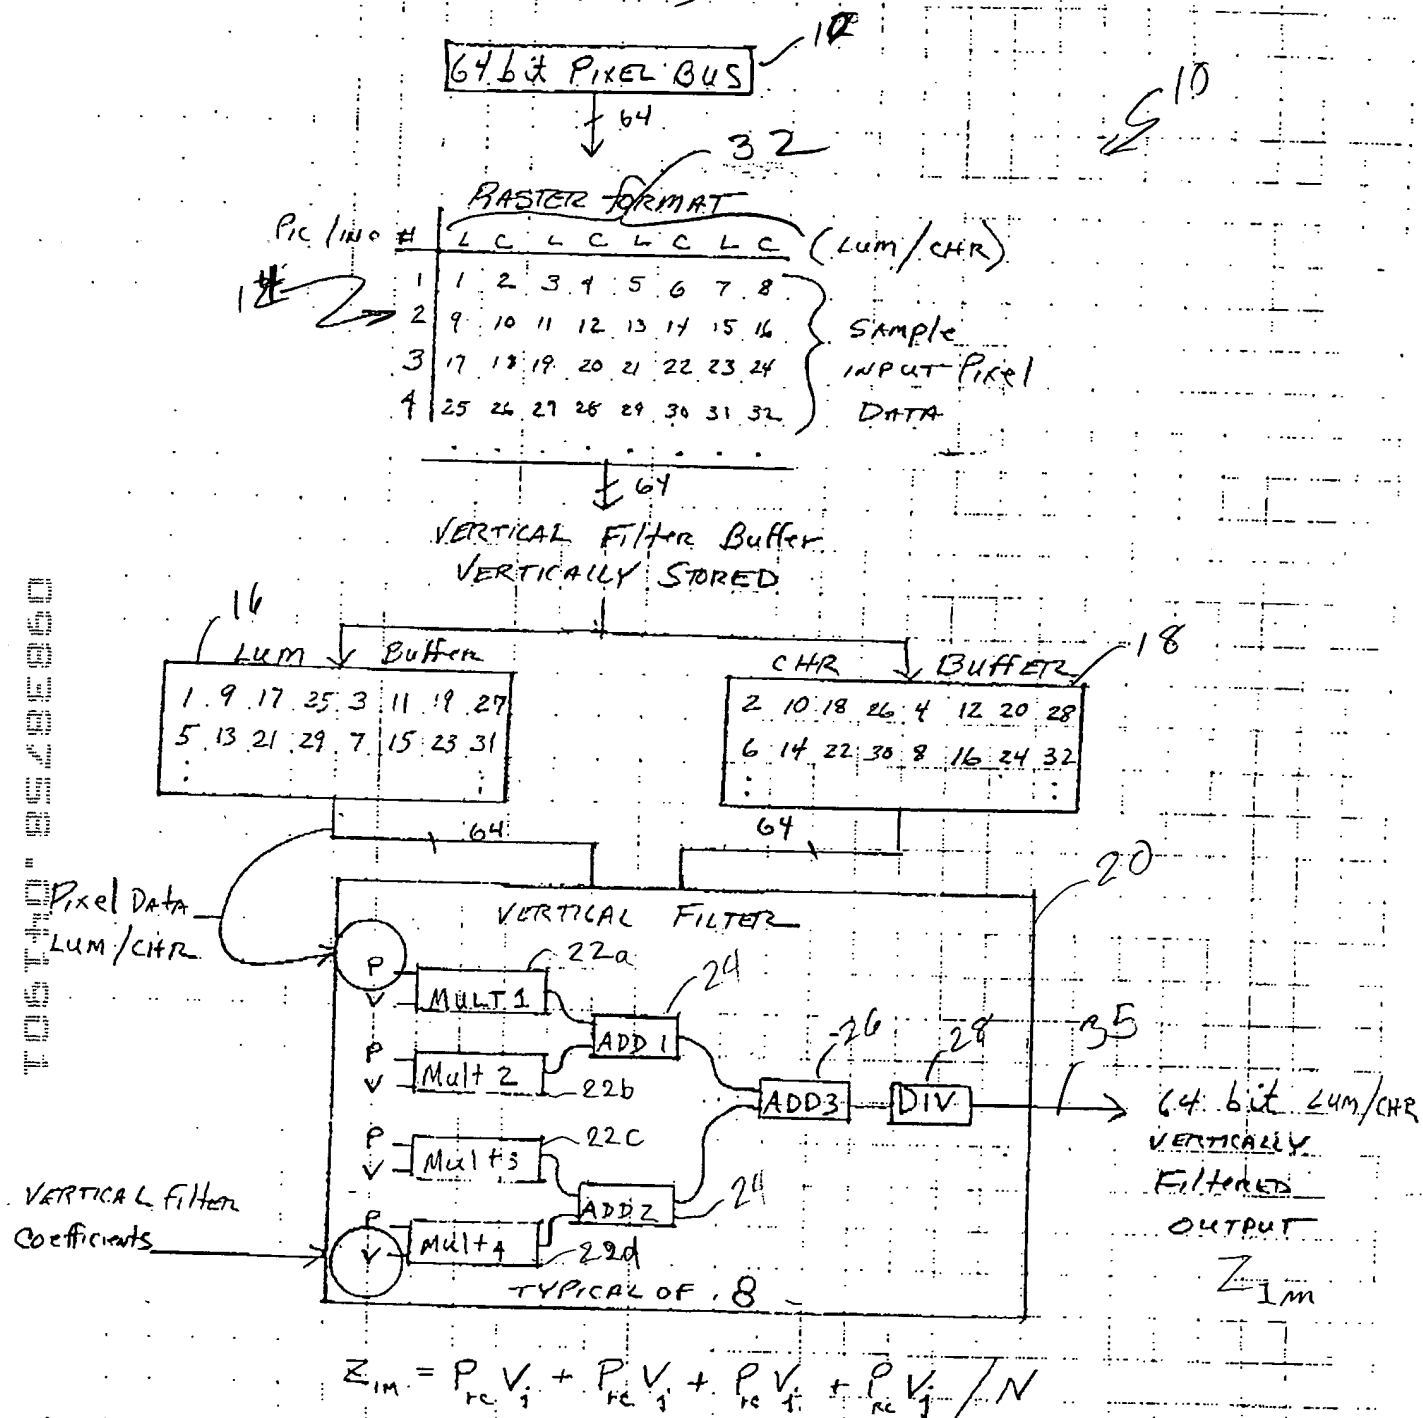 12
64 bit PIXEL BUS
10
64
32
RASTER FORMAT
PIC / # L C L C L C L C (LUM/CHR)
1 1 2 3 4 5 6 7 8
14
2 9 10 11 12 13 14 15 16 SAMPLE
3 17 18 19 20 21 22 23 24 INPUT PIXEL
4 25 26 27 28 29 30 31 32 DATA
64
VERTICAL Filter Buffer
VERTICALLY STORED
16
LUM Buffer
1 9 17 25 3 11 19 27
5 13 21 29 7 15 23 31
CHR BUFFER 18
2 10 18 26 4 12 20 28
6 14 22 30 8 16 24 32
64 64
20
Pixel DATA
LUM/CHR
VERTICAL FILTER
22a
24
P
V
MULT 1
ADD 1
P
V
Mult 2
22b
26
28
35
ADD3
DIV
64 bit LUM/CHR
VERTICALLY
FilteRED
OUTPUT
Z1m
P
V
Mult 3
22c
ADD2
24
VERTICAL Filter
Coefficients
P
V
Mult 4
22d
TYPICAL OF 8
Z1M = Prc Vj + Prc Vj + Prc Vj + Prc Vj / N